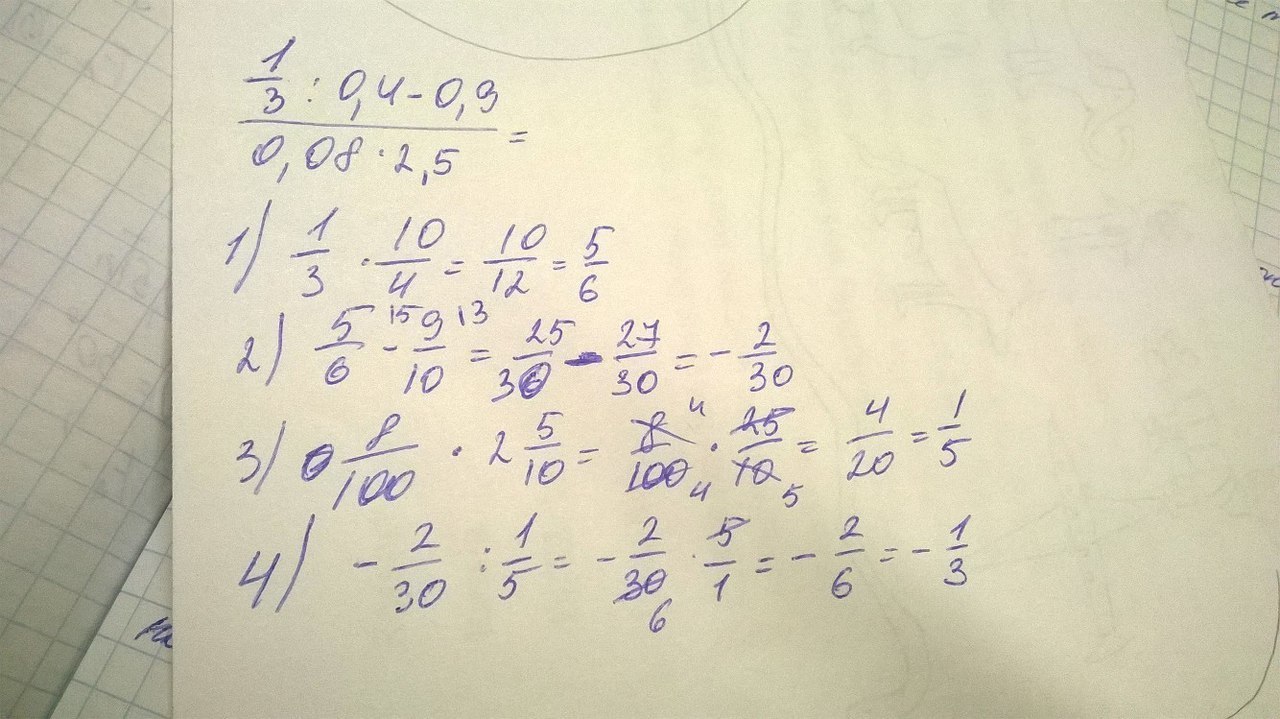 1/3 : 0,4 - 0,9
0,08 · 2,5 =
1) 1/3 · 10/4 = 10/12 = 5/6
2) 5/6 |5 - 9/10 |3 = 25/30 - 27/30 = - 2/30
3) 8/100 · 2 5/10 = 8/100 4 4 · 25/10 5 = 4/20 = 1/5
4) - 2/30 : 1/5 = - 2/30 6 · 5/1 = - 2/6 = - 1/3